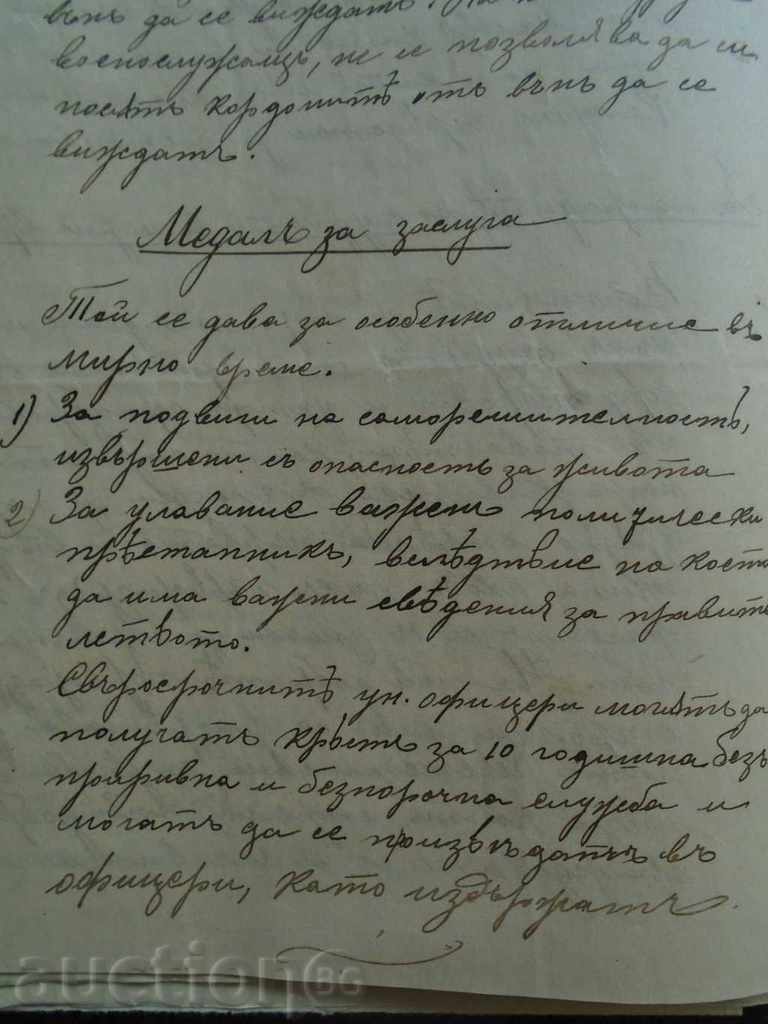 вънъ да се виждатъ. На
военослужащъ, не се позволява да си
носятъ кордонитѣ отъ вънъ да се
виждатъ.
Медалъ за заслуга
Той се дава за особенно отличие въ
мирно време.
1) За подвиги на саморешителность,
извършени съ опасность за живота
2) За улавание важен политически
прѣстапникъ, вслѣдствие на кое то
да има важни сведения за правите
лството.
Свърхсрочнитѣ ун. офицери могѫтъ да
получатъ крѣстъ за 10 годишна безъ
прѣривна и безпорочна служба и
могатъ да се произвѣдатъ въ
офицери, като издържатъ.
auctionBG